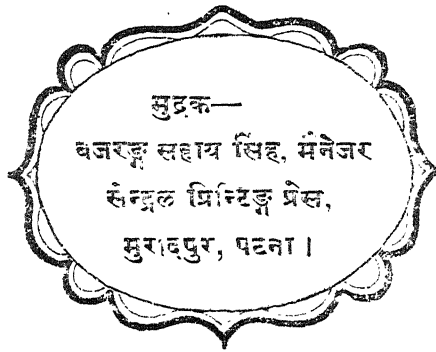 मुद्रक—
बजरङ्ग सहाय सिंह, मैनेजर
सेन्ट्रल प्रिन्टिङ्ग प्रेस,
मुरादपुर, पटना ।